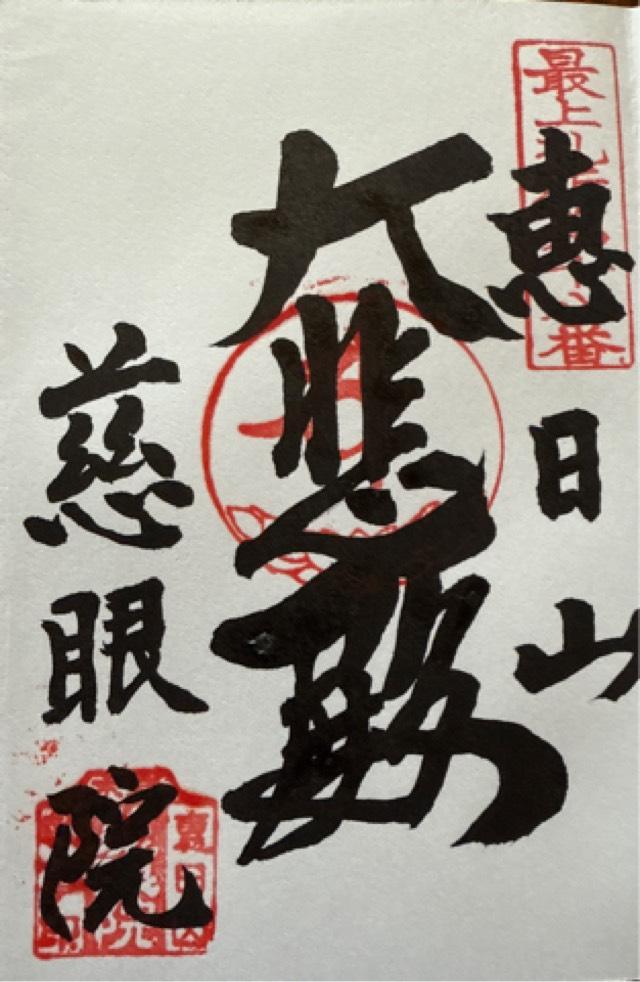 最上
番
恵日山
大悲殿
慈眼院